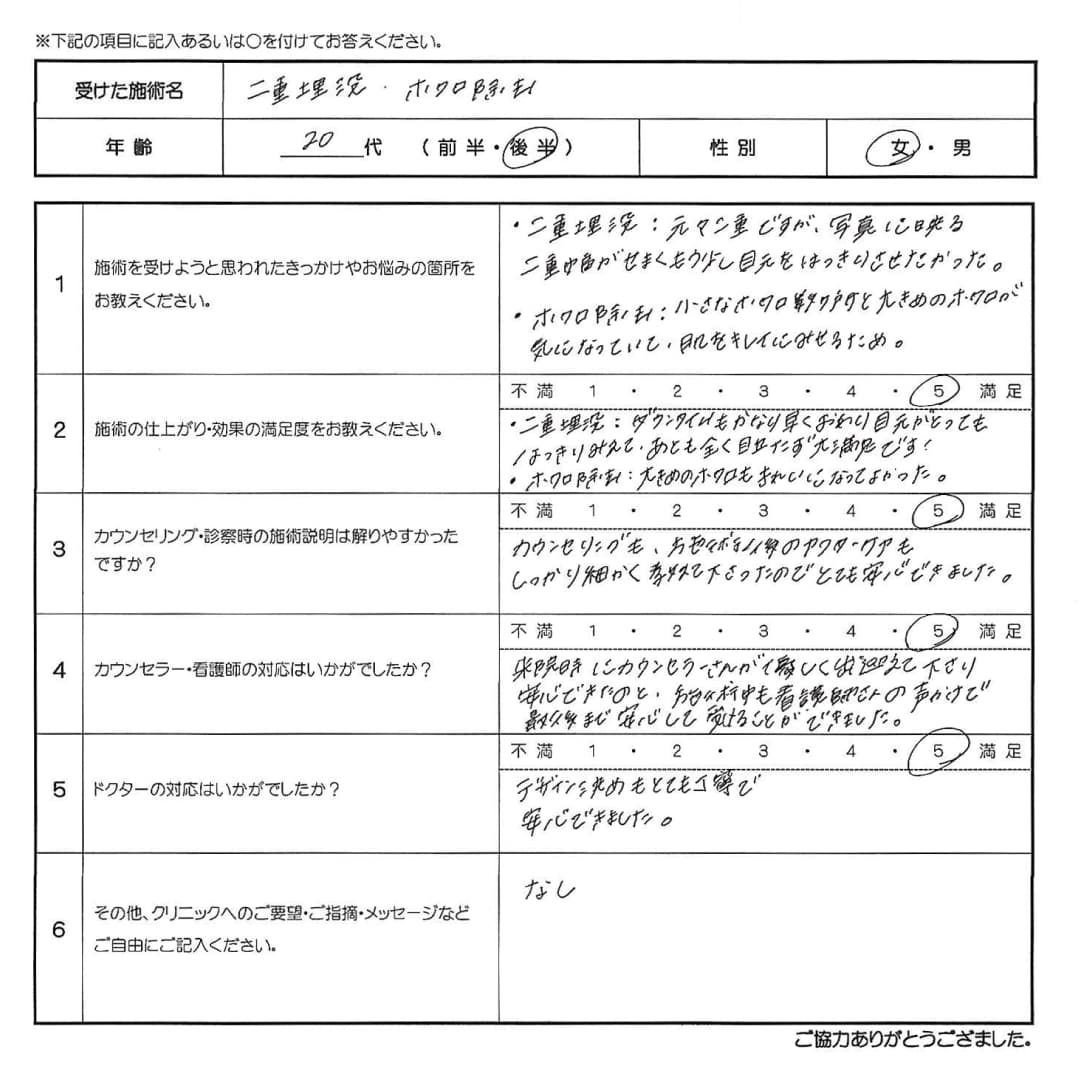 ※下記の項目に記入あるいは〇を付けてお答えください。
受けた施術名 二重埋没・ホクロ除去
年齢 20代 (前半・後半) 性別 女・男
1 施術を受けようと思われたきっかけやお悩みの箇所を
お教えください。
・二重埋没:元々二重ですが、写真に映る
二重幅がせまくもう少し目元をはっきりさせたかった。
・ホクロ除去:小さなホクロ数ヶ所と大きめのホクロが
気になっていて、肌をキレイにみせるため。
2 施術の仕上がり・効果の満足度をお教えください。
不満 1・2・3・4・5 満足
・二重埋没:ダウンタイムもかなり早くおわり目元がとっても
はっきりみえて、あとも全く目立たず大満足です!
・ホクロ除去:大きめのホクロもきれいになってよかった。
3 カウンセリング・診察時の施術説明は解りやすかった
ですか?
不満 1・2・3・4・5 満足
カウンセリングも、施術後のアフターケアも
しっかり細かく教えて下さったのでとても安心できました。
4 カウンセラー・看護師の対応はいかがでしたか?
不満 1・2・3・4・5 満足
来院時にカウンセラーさんが優しくお迎えて下さり
安心できたのと、施術中も看護師さんの声かけで
最後まで安心して受けることができました。
5 ドクターの対応はいかがでしたか?
不満 1・2・3・4・5 満足
デザイン決めもとても丁寧で
安心できました。
6 その他、クリニックへのご要望・ご指摘・メッセージなど
ご自由にご記入ください。
なし
ご協力ありがとうござました。